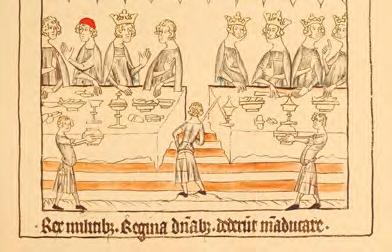 Rex militibꝫ. Regina dn̄abꝫ. dederūt m̄aducare.